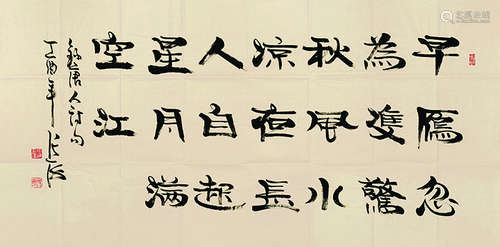 早鴈忽
為雙驚
秋風水
凉夜長
人自起
星月滿
空江
錄唐人詩句
丁酉年 張海